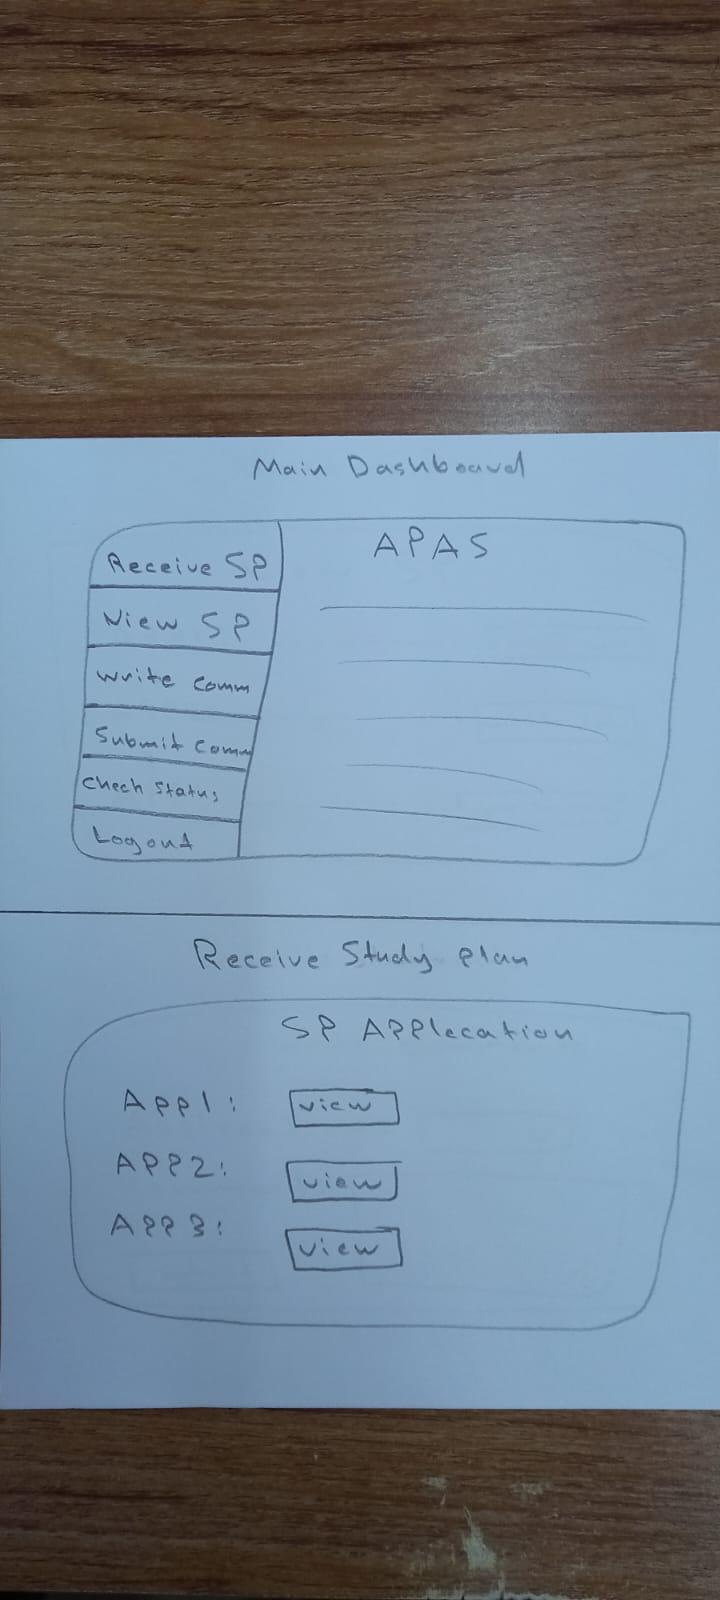 Main Dashboard
APAS
Receive SP
View SP
write comm
Submit comm
Chech status
Logout
Receive Study plan
SP Applecation
App1:
view
APP2:
view
APP3:
view